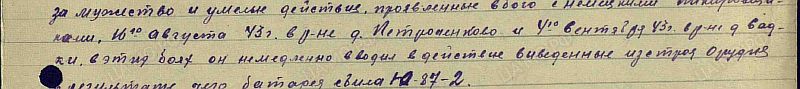 за мужество и умелые действие, проявленные в бою с немецкими пикировщи-
ками, 16го августа 43г. в р-не д. Петроленково и 4го сентября 43г. в р-не д вод-
ки, в этих боях он немедленно вводил в действие выведенные из строя Орудия
в результате чего батарея сбила Ю-87-2.